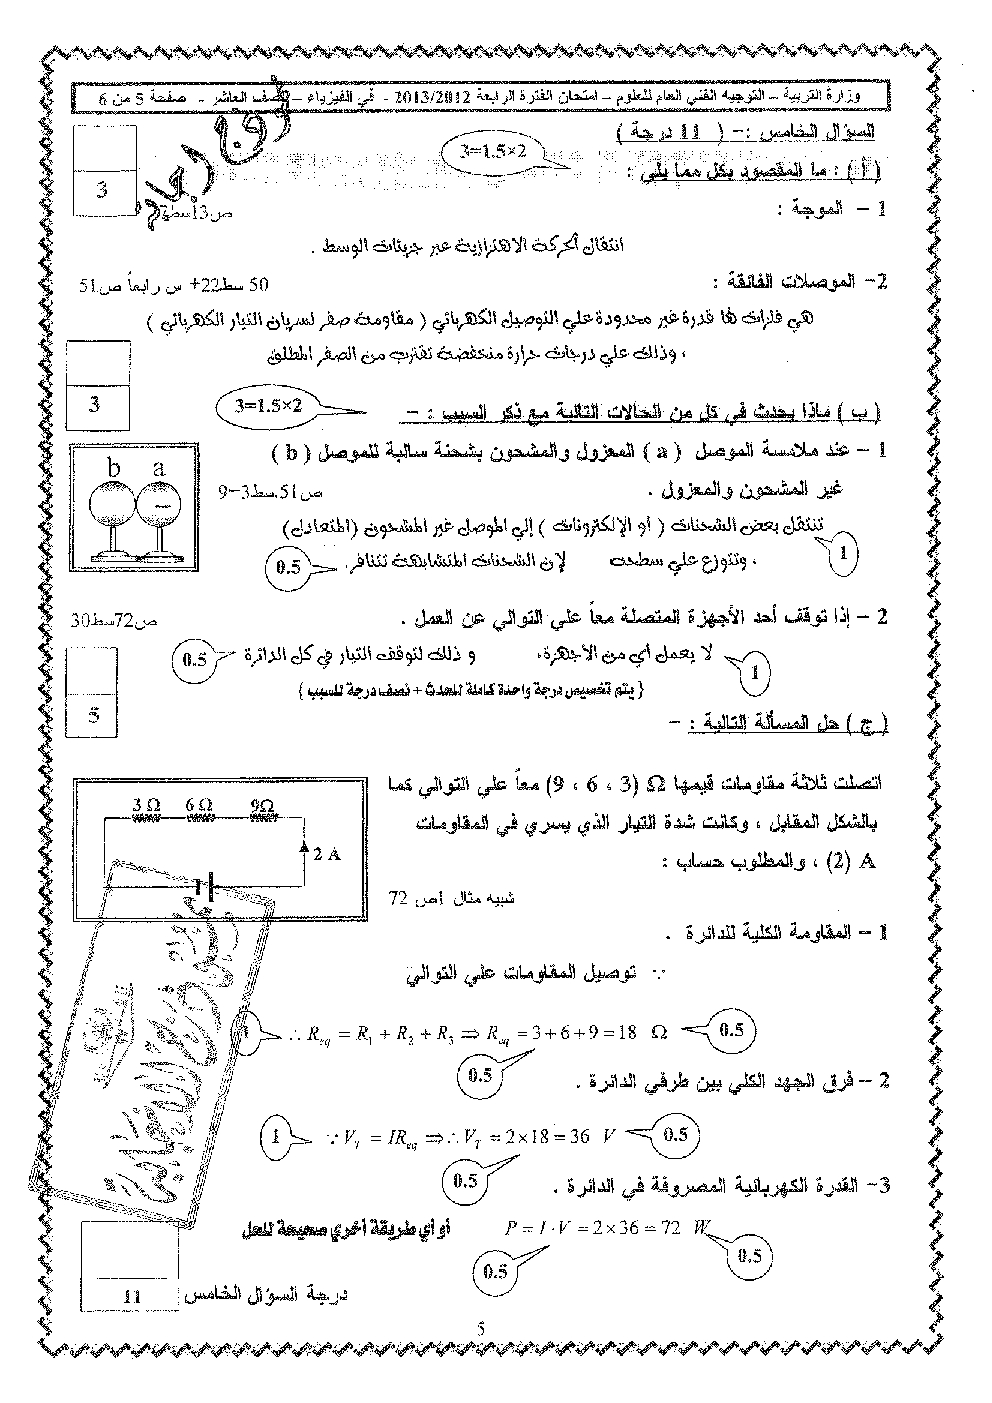 وزارة التربية – التوجيه الفني العام للعلوم – امتحان الفترة الرابعة 2013/2012 - في الفيزياء – الصف العاشر - صفحة 5 من 6
السؤال الخامس :- ( 11 درجة )
3=1.5×2
( أ ) : ما المقصود بكل مما يلي :
3
1 – الموجة :
ص13سط
انتقال الحركة الاهتزازية عبر جزيئات الوسط .
2- الموصلات الفائقة :
50 سط22+ س رابعاً ص51
هي فلزات لها قدرة غير محدودة علي التوصيل الكهربائي ( مقاومة صفر لسريان التيار الكهربائي )
، وذلك علي درجات حرارة منخفضة تقترب من الصفر المطلق
3
( ب ) ماذا يحدث في كل من الحالات التالية مع ذكر السبب : -
3=1.5×2
1 – عند ملامسة الموصل ( a ) المعزول والمشحون بشحنة سالبة للموصل ( b )
غير المشحون والمعزول .
ص51.سط3-9
b a
–
تنتقل بعض الشحنات ( أو الإلكترونات ) إلي الموصل غير المشحون (المتعادل)
1
، وتتوزع علي سطحه لإن الشحنات المتشابهة تتنافر .
0.5
2 – إذا توقف أحد الأجهزة المتصلة معاً علي التوالي عن العمل .
ص72سط30
لا يعمل أي من الأجهزة، و ذلك لتوقف التيار في كل الدائرة
0.5
1
{ يتم تخصيص درجة واحدة كاملة للحدث + نصف درجة للسبب }
5
( ج ) حل المسألة التالية : -
اتصلت ثلاثة مقاومات قيمها Ω (3 ، 6 ، 9) معاً علي التوالي كما
بالشكل المقابل ، وكانت شدة التيار الذي يسري في المقاومات
A (2) ، والمطلوب حساب :
3 Ω 6 Ω 9Ω
2 A
شبيه مثال 1ص 72
1 – المقاومة الكلية للدائرة .
∵ توصيل المقاومات علي التوالي
∴ R_eq = R_1 + R_2 + R_3 ⇒ R_eq = 3+6+9=18 Ω
0.5
0.5
2 – فرق الجهد الكلي بين طرفي الدائرة .
1
∵ V_T = IR_eq ⇒∴ V_T = 2×18 = 36 V
0.5
0.5
3- القدرة الكهربائية المصروفة في الدائرة .
P = I · V = 2×36 = 72 W
أو أي طريقة أخري صحيحة للحل
0.5
0.5
11
درجة السؤال الخامس
5